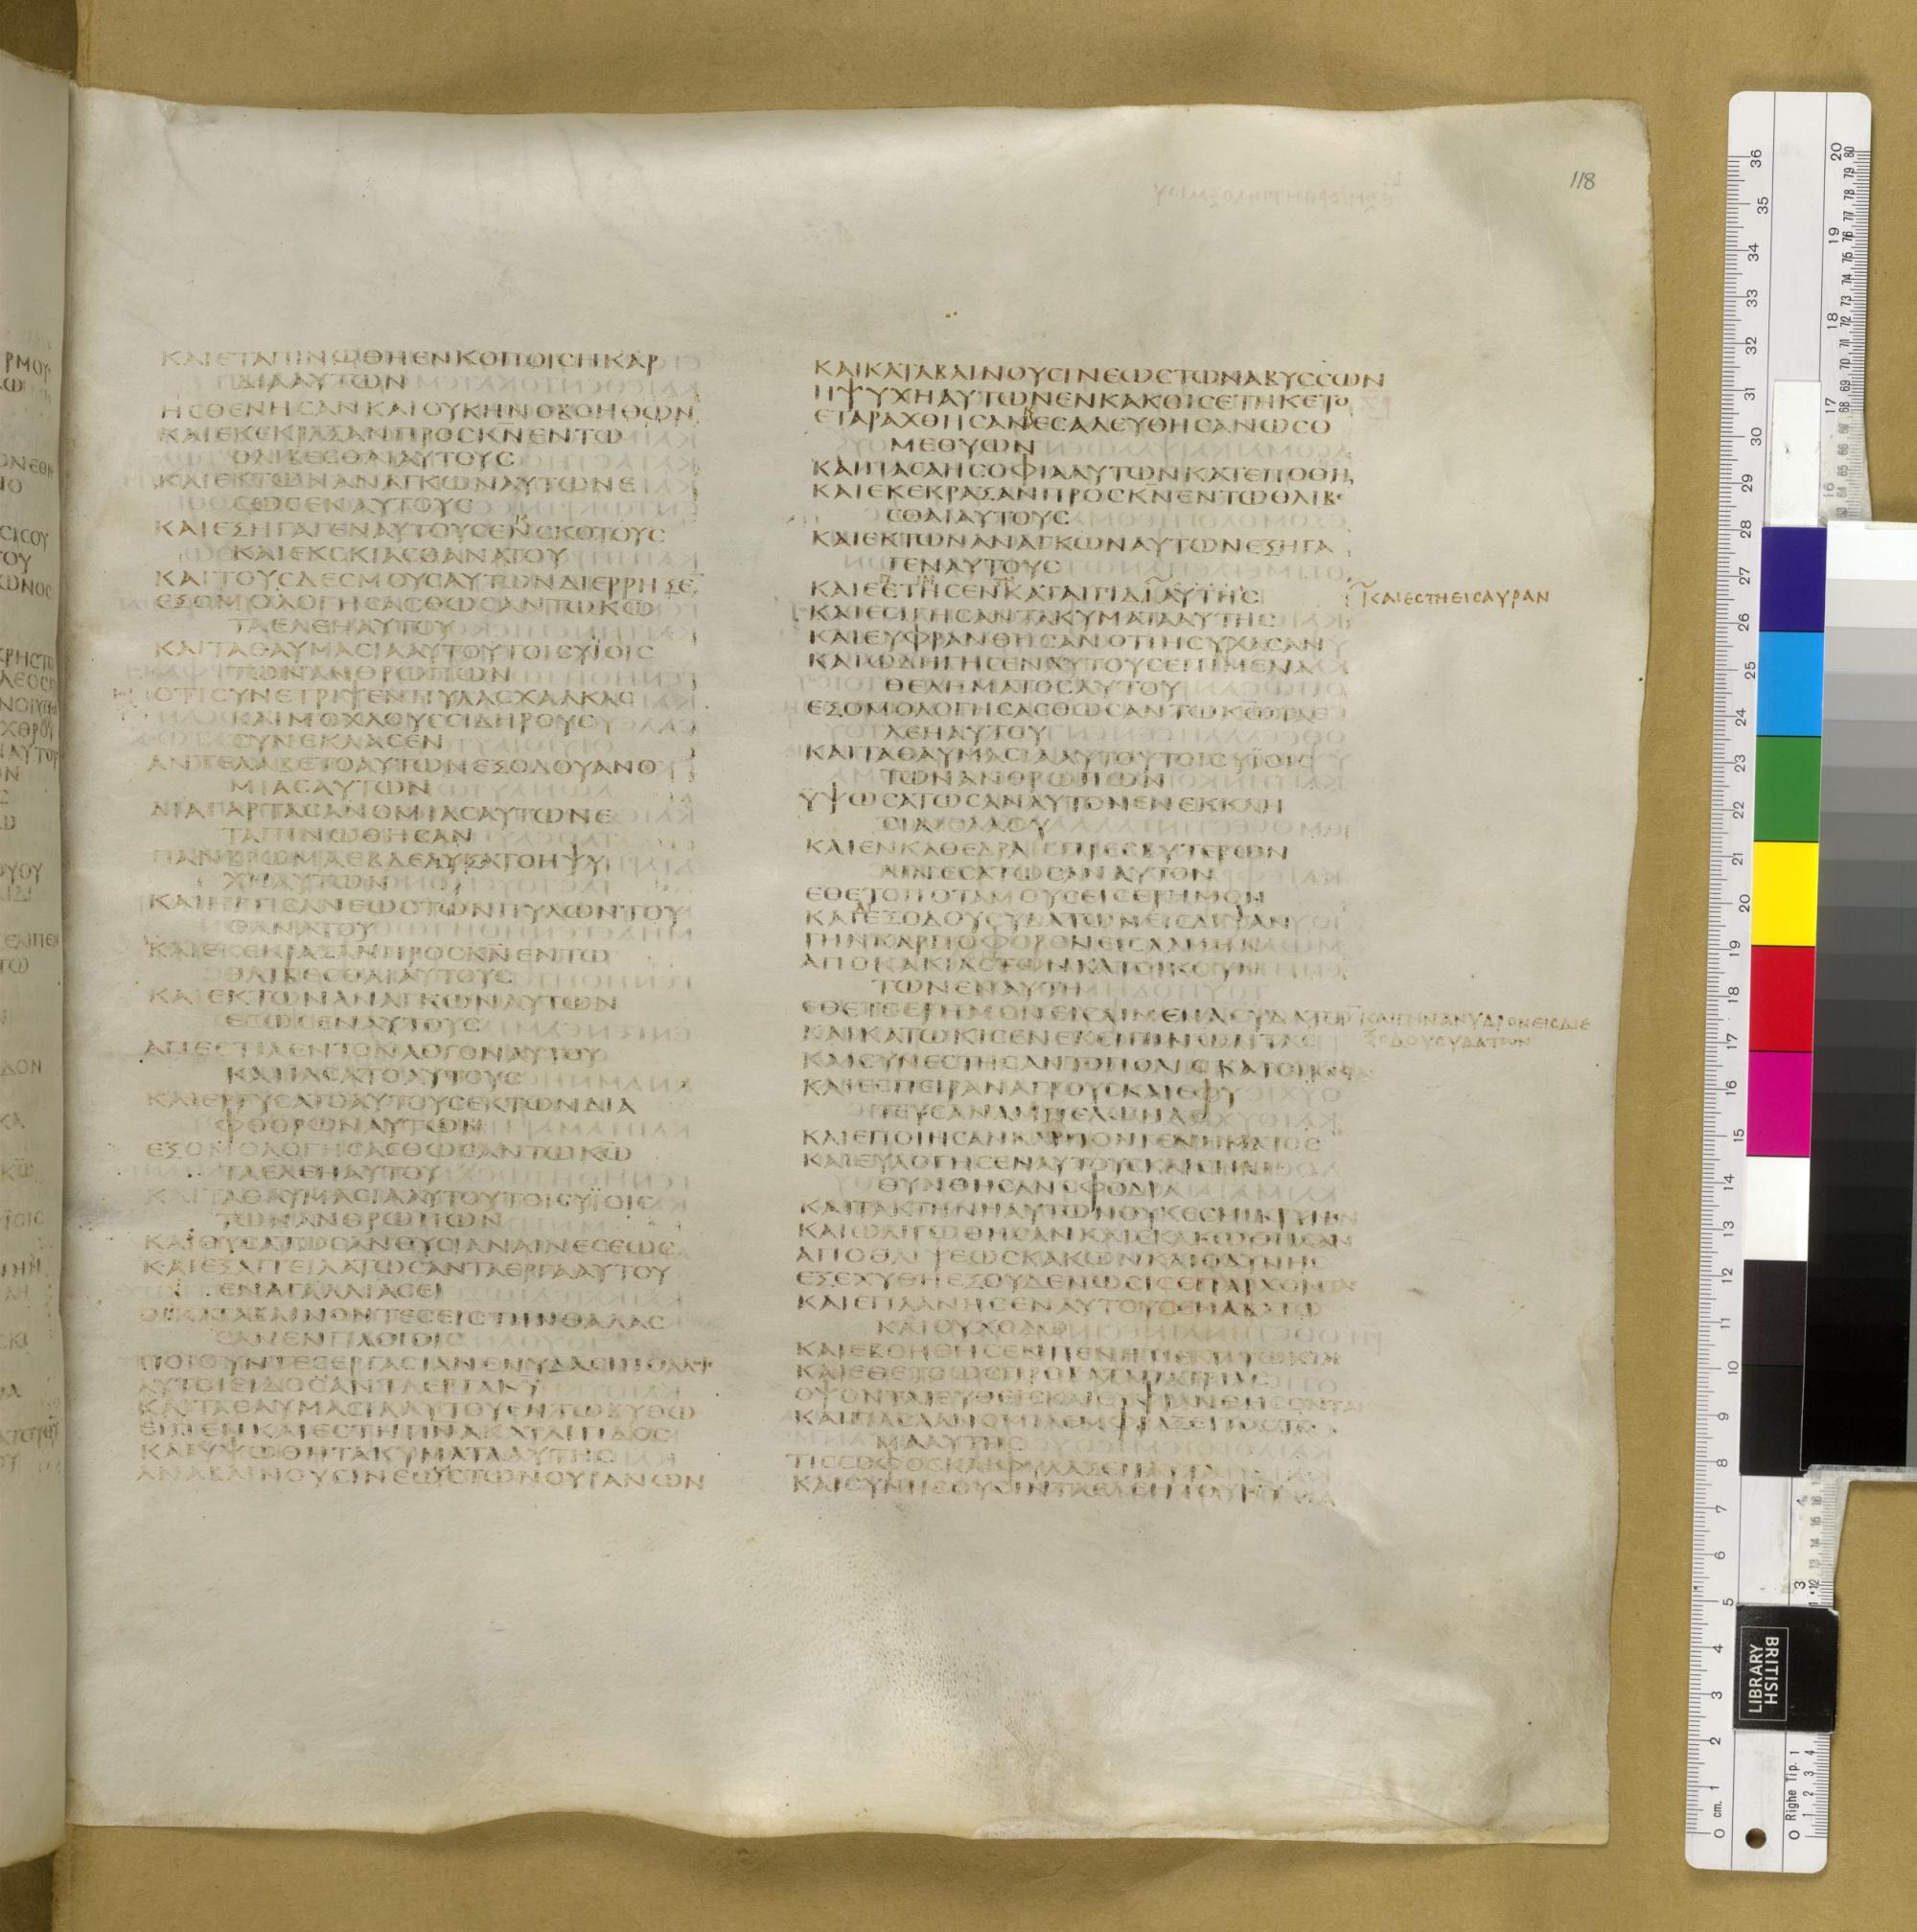 118
ΚΑΙΕΤΑΠΙΝΩΘΗΕΝΚΟΠΟΙCΗΚΑΡ
ΔΙΑΑΥΤΩΝ
ΗCΘΕΝΗCΑΝΚΑΙΟΥΚΗΝΟΒΟΗΘΩΝ
ΚΑΙΕΚΕΚΡΑΞΑΝΠΡΟCΚΝΕΝΤΩ
ΘΛΙΒΕCΘΑΙΑΥΤΟΥC
ΚΑΙΕΚΤΩΝΑΝΑΓΚΩΝΑΥΤΩΝΕ
CΩCΕΝΑΥΤΟΥC
ΚΑΙΕΞΗΓΑΓΕΝΑΥΤΟΥCΕΝCΚΟΤΟΥC
ΚΑΙΕΚCΚΙΑCΘΑΝΑΤΟΥ
ΚΑΙΤΟΥCΔΕCΜΟΥCΑΥΤΩΝΔΙΕΡΡΗΞΕ
ΕΞΟΜΟΛΟΓΗCΑCΘΩCΑΝΤΩΚΩ
ΤΑΕΛΕΗΑΥΤΟΥ
ΚΑΙΤΑΘΑΥΜΑCΙΑΑΥΤΟΥΤΟΙCΥΪΟΙC
ΤΩΝΑΝΘΡΩΠΩΝ
ΟΤΙCΥΝΕΤΡΙΨΕΝΠΥΛΑCΧΑΛΚΑC
ΚΑΙΜΟΧΛΟΥCCΙΔΗΡΟΥC
CΥΝΕΚΛΑCΕΝ
ΑΝΤΕΛΑΒΕΤΟΑΥΤΩΝΕΞΟΔΟΥΑΝΟ
ΜΙΑCΑΥΤΩΝ
ΔΙΑΓΑΡΤΑCΑΝΟΜΙΑCΑΥΤΩΝΕ
ΤΑΠΙΝΩΘΗCΑΝ
ΠΑΝΒΡΩΜΑΕΒΔΕΛΥΞΑΤΟΗΨΥ
ΧΗΑΥΤΩΝ
ΚΑΙΗΓΓΙCΑΝΕΩCΤΩΝΠΥΛΩΝΤΟΥ
ΘΑΝΑΤΟΥ
ΚΑΙΕΚΕΚΡΑΞΑΝΠΡΟCΚΝΕΝΤΩ
ΘΛΙΒΕCΘΑΙΑΥΤΟΥC
ΚΑΙΕΚΤΩΝΑΝΑΓΚΩΝΑΥΤΩΝ
ΕCΩCΕΝΑΥΤΟΥC
ΑΠΕCΤΙΛΕΝΤΟΝΛΟΓΟΝΑΥΤΟΥ
ΚΑΙΪΑCΑΤΟΑΥΤΟΥC
ΚΑΙΕΡΥCΑΤΟΑΥΤΟΥCΕΚΤΩΝΔΙΑ
ΦΘΟΡΩΝΑΥΤΩΝ
ΕΞΟΜΟΛΟΓΗCΑCΘΩCΑΝΤΩΚΩ
ΤΑΕΛΕΗΑΥΤΟΥ
ΚΑΙΤΑΘΑΥΜΑCΙΑΑΥΤΟΥΤΟΙCΥΪΟΙC
ΤΩΝΑΝΘΡΩΠΩΝ
ΚΑΙΘΥCΑΤΩCΑΝΘΥCΙΑΝΑΙΝΕCΕΩC
ΚΑΙΕΞΑΓΓΕΙΛΑΤΩCΑΝΤΑΕΡΓΑΑΥΤΟΥ
ΕΝΑΓΑΛΛΙΑCΕΙ
ΟΙΚΑΤΑΒΑΙΝΟΝΤΕCΕΙCΤΗΝΘΑΛΑC
CΑΝΕΝΠΛΟΙΟΙC
ΠΟΙΟΥΝΤΕCΕΡΓΑCΙΑΝΕΝΥΔΑCΙΠΟΛΛ
ΑΥΤΟΙΕΙΔΟCΑΝΤΑΕΡΓΑΚΥ
ΚΑΙΤΑΘΑΥΜΑCΙΑΑΥΤΟΥΕΝΤΩΒΥΘΩ
ΕΙΠΕΝΚΑΙΕCΤΗΠΝΑΚΑΤΑΙΓΙΔΟC
ΚΑΙΥΨΩΘΗΤΑΚΥΜΑΤΑΑΥΤΗC
ΑΝΑΒΑΙΝΟΥCΙΝΕΩCΤΩΝΟΥΡΑΝΩΝ
ΚΑΙΚΑΤΑΒΑΙΝΟΥCΙΝΕΩCΤΩΝΑΒΥCCΩΝ
ΗΨΥΧΗΑΥΤΩΝΕΝΚΑΚΟΙCΕΤΗΚΕΤΟ
ΕΤΑΡΑΧΘΗCΑΝΕCΑΛΕΥΘΗCΑΝΩCΟ
ΜΕΘΥΩΝ
ΚΑΙΠΑCΑΗCΟΦΙΑΑΥΤΩΝΚΑΤΕΠΟΘΗ
ΚΑΙΕΚΕΚΡΑΞΑΝΠΡΟCΚΝΕΝΤΩΘΛΙΒΕ
CΘΑΙΑΥΤΟΥC
ΚΑΙΕΚΤΩΝΑΝΑΓΚΩΝΑΥΤΩΝΕΞΗΓΑ
ΓΕΝΑΥΤΟΥC
ΚΑΙΕCΤΗCΕΝΚΑΤΑΙΓΙΔΙΑΥΤΗC
ΚΑΙΕCΤΗΕΙCΑΥΡΑΝ
ΚΑΙΕCΙΓΗCΑΝΤΑΚΥΜΑΤΑΑΥΤΗC
ΚΑΙΕΥΦΡΑΝΘΗCΑΝΟΤΙΗCΥΧΑCΑΝ
ΚΑΙΩΔΗΓΗCΕΝΑΥΤΟΥCΕΠΙΛΙΜΕΝΑ
ΘΕΛΗΜΑΤΟCΑΥΤΟΥ
ΕΞΟΜΟΛΟΓΗCΑCΘΩCΑΝΤΩΚΩΤΑΕ
ΛΕΗΑΥΤΟΥ
ΚΑΙΤΑΘΑΥΜΑCΙΑΑΥΤΟΥΤΟΙCΥΪΟΙC
ΤΩΝΑΝΘΡΩΠΩΝ
ΫΨΩCΑΤΩCΑΝΑΥΤΟΝΕΝΕΚΚΛΗ
CΙΑΛΑΟΥ
ΚΑΙΕΝΚΑΘΕΔΡΑΠΡΕCΒΥΤΕΡΩΝ
ΑΙΝΕCΑΤΩCΑΝΑΥΤΟΝ
ΕΘΕΤΟΠΟΤΑΜΟΥCΕΙCΕΡΗΜΟΝ
ΚΑΙΕΞΟΔΟΥCΥΔΑΤΩΝΕΙCΔΙΨΑΝ
ΓΗΝΚΑΡΠΟΦΟΡΟΝΕΙCΑΛΜΗΝ
ΑΠΟΚΑΚΙΑCΤΩΝΚΑΤΟΙΚΟΥΝ
ΤΩΝΕΝΑΥΤΗ
ΕΘΕΤΟΕΡΗΜΟΝΕΙCΛΙΜΕΝΑCΥΔΑΤΩ
ΚΑΙΓΗΝΑΝΥΔΡΟΝΕΙCΔΙΕ
ΞΟΔΟΥCΥΔΑΤΩΝ
ΚΑΙΚΑΤΩΚΙCΕΝΕΚΕΙΠΙΝΩΝΤΑC
ΚΑΙCΥΝΕCΤΗCΑΝΤΟΠΟΛΙC
ΚΑΙΕCΠΕΙΡΑΝΑΓΡΟΥCΚΑΙΕΦΥ
ΤΕΥCΑΝΑΜΠΕΛΩΝΑC
ΚΑΙΕΠΟΙΗCΑΝΚΑΡΠΟΝΓΕΝΗΜΑΤΟC
ΚΑΙΕΥΛΟΓΗCΕΝΑΥΤΟΥCΚΑΙΕΠΛΗ
ΘΥΝΘΗCΑΝCΦΟΔΡΑ
ΚΑΙΤΑΚΤΗΝΗΑΥΤΩΝΟΥΚΕCΜΙΚΡΥΝΕ
ΚΑΙΩΛΙΓΩΘΗCΑΝΚΑΙΕΚΑΚΩΘΗCΑΝ
ΑΠΟΘΛΙΨΕΩCΚΑΚΩΝΚΑΙΟΔΥΝΗC
ΕΞΕΧΥΘΗΕΞΟΥΔΕΝΩCΙCΕΠΑΡΧΟΝΤΑC
ΚΑΙΕΠΛΑΝΗCΕΝΑΥΤΟΥCΕΝΑΒΑΤΩ
ΚΑΙΟΥΧΟΔΩ
ΚΑΙΕΒΟΗΘΗCΕΝΠΕΝΗΤΙΕΚΠΤΩΧΙΑC
ΚΑΙΕΘΕΤΟΩCΠΡΟΒΑΤΑΠΑΤΡΙΑC
ΟΨΟΝΤΑΙΕΥΘΕΙCΚΑΙΕΥΦΡΑΝΘΗCΟΝΤΑΙ
ΚΑΙΠΑCΑΑΝΟΜΙΑΕΜΦΡΑΞΕΙΤΟCΤΟ
ΜΑΑΥΤΗC
ΤΙCCΟΦΟCΚΑΙΦΥΛΑΞΕΙΤΑΥΤΑ
ΚΑΙCΥΝΗCΟΥCΙΝΤΑΕΛΕΗΤΟΥΚΥ